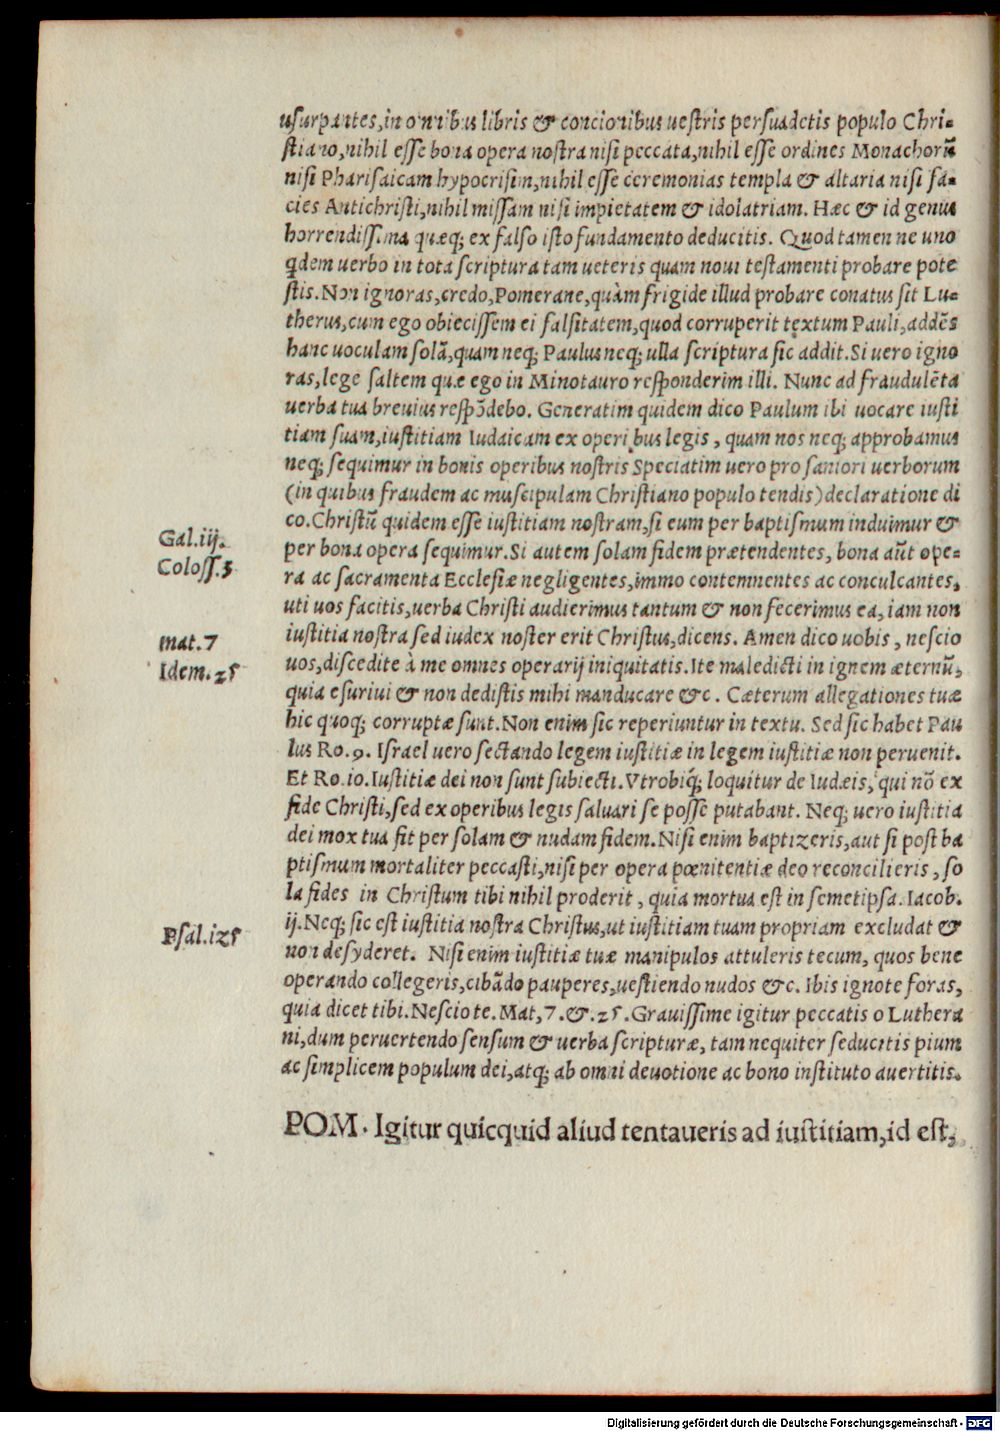 usurpantes, in omnibus libris & concionibus uestris persuadetis populo Chri-
stiano, nihil esse bona opera nostra nisi peccata, nihil esse ordines Monachorũ
nisi Pharisaicam hypocrisim, nihil esse ceremonias templa & altaria nisi fa-
cies Antichristi, nihil missam nisi impietatem & idolatriam. Hæc & id genus
horrendissima quæq; ex falso isto fundamento deducitis. Quod tamen ne uno
q̃dem uerbo in tota scriptura tam ueteris quam noui testamenti probare pote
stis. Non ignoras, credo, Pomerane, quàm frigide illud probare conatus sit Lu-
therus, cum ego obiecissem ei falsitatem, quod corruperit textum Pauli, addẽs
hanc uoculam solã, quam neq; Paulus neq; ulla scriptura sic addit. Si uero igno
ras, lege saltem quæ ego in Minotauro responderim illi. Nunc ad fraudulẽta
uerba tua breuius respõdebo. Generatim quidem dico Paulum ibi uocare iusti
tiam suam, iustitiam Iudaicam ex operibus legis, quam nos neq; approbamus
neq; sequimur in bonis operibus nostris Speciatim uero pro saniori uerborum
(in quibus fraudem ac muscipulam Christiano populo tendis) declaratione di
co. Christũ quidem esse iustitiam nostram, si eum per baptismum induimur &
Gal.iij.
per bona opera sequimur. Si autem solam fidem prætendentes, bona aũt ope-
Coloss.3
ra ac sacramenta Ecclesiæ negligentes, immo contemnentes ac conculcantes,
uti uos facitis, uerba Christi audierimus tantum & non fecerimus ea, iam non
iustitia nostra sed iudex noster erit Christus, dicens. Amen dico uobis, nescio
mat.7
uos, discedite à me omnes operarij iniquitatis. Ite maledicti in ignem æternũ,
Idem.25
quia esuriui & non dedistis mihi manducare &c. Cæterum allegationes tuæ
hic quoq; corruptæ sunt. Non enim sic reperiuntur in textu. Sed sic habet Pau
lus Ro.9. Israel uero sectando legem iustitiæ in legem iustitiæ non peruenit.
Et Ro.10. Iustitiæ dei non sunt subiecti. Vtrobiq̃; loquitur de Iudæis, qui nõ ex
fide Christi, sed ex operibus legis saluari se posse putabant. Neq; uero iustitia
dei mox tua fit per solam & nudam fidem. Nisi enim baptizeris, aut si post ba
ptismum mortaliter peccasti, nisi per opera pœnitentiæ deo reconcilieris, so
la fides in Christum tibi nihil proderit, quia mortua est in semetipsa. Iacob.
ij. Neq; sic est iustitia nostra Christus, ut iustitiam tuam propriam excludat &
Psal.125
non desyderet. Nisi enim iustitiæ tuæ manipulos attuleris tecum, quos bene
operando collegeris, cibãdo pauperes, uestiendo nudos &c. Ibis ignote foras,
quia dicet tibi. Nescio te. Mat, 7. &. 25. Grauissime igitur peccatis o Luthera
ni, dum peruertendo sensum & uerba scripturæ, tam nequiter seducitis pium
ac simplicem populum dei, atq; ab omni deuotione ac bono instituto auertitis.
POM. Igitur quicquid aliud tentaueris ad iustitiam, id est,
Digitalisierung gefördert durch die Deutsche Forschungsgemeinschaft - DFG